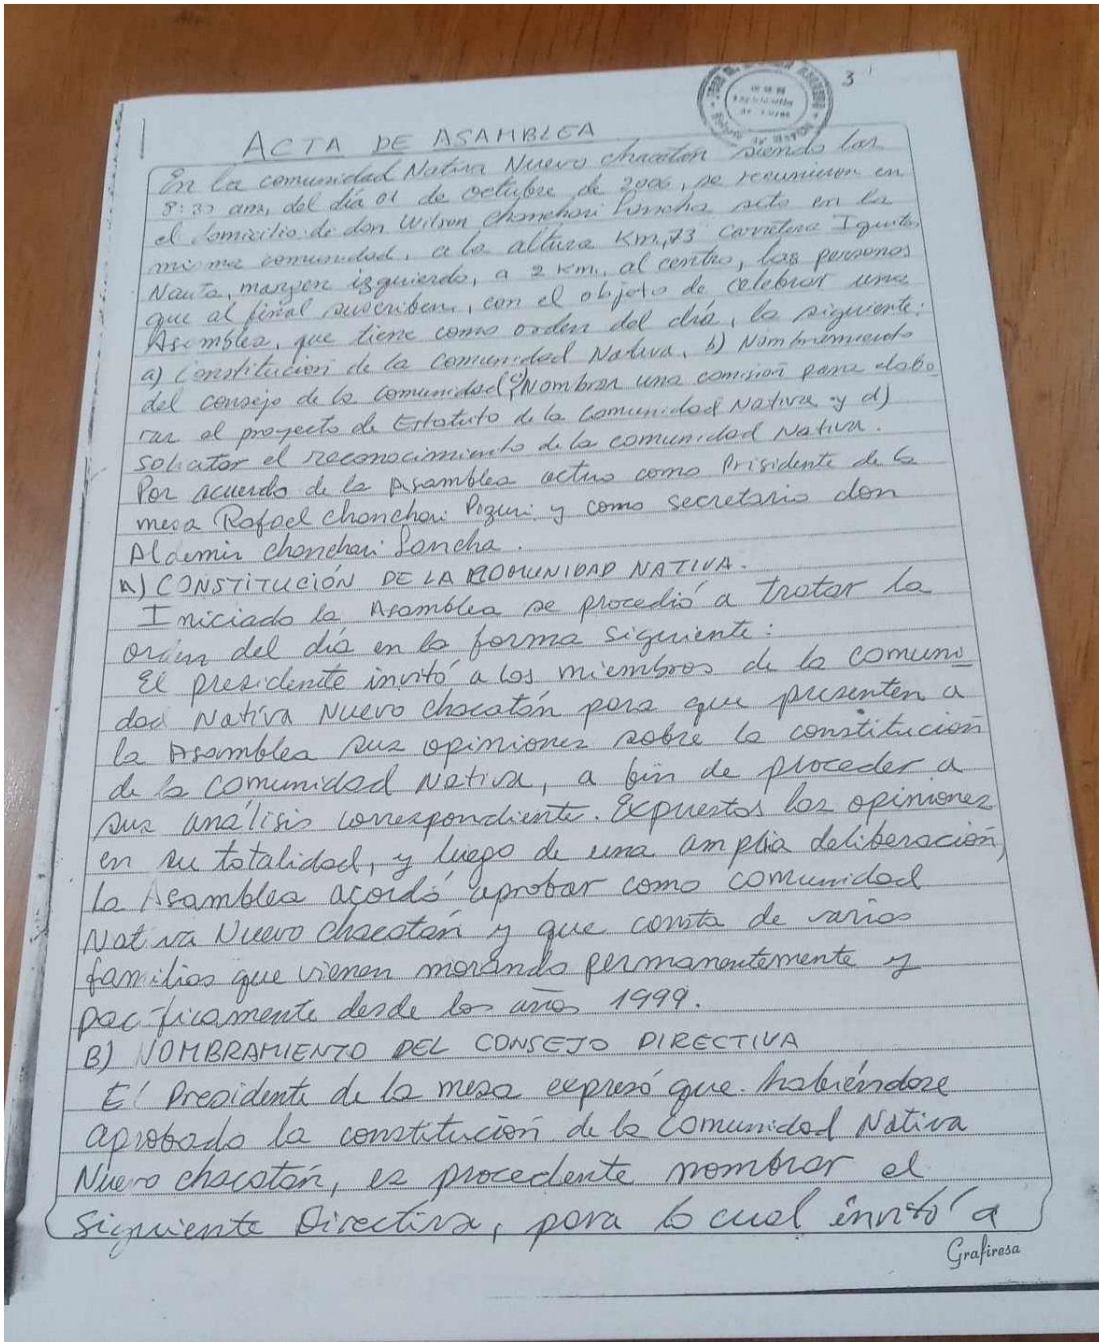 3
ACTA DE ASAMBLEA
En la comunidad Nativa Nuevo chacatán siendo las
8:30 am, del día 01 de octubre de 2006, se reunieron en
el domicilio de don Wilson Chanchari Lancha sito en la
misma comunidad, a la altura Km, 73 carretera Iquitos
Nauta, margen izquierdo, a 2 km. al centro, las personas
que al final suscriben, con el objeto de celebrar una
Asamblea, que tiene como orden del día, lo siguiente:
a) Constitución de la comunidad Nativa, b) Nombramiento
del consejo de la comunidad c) Nombrar una comisión para elabo
rar el proyecto de Estatuto de la Comunidad Nativa y d)
solicitar el reconocimiento de la comunidad Nativa.
Por acuerdo de la Asamblea actuo como Prisidente de la
mesa Rafael chanchari Pizuri y como secretario don
Aldemir chanchari Lancha.
A) CONSTITUCIÓN DE LA COMUNIDAD NATIVA.
Iniciado la Asamblea se procedió a tratar la
orden del día en la forma siguiente:
El presidente invitó a los miembros de la comuni
dad Nativa Nuevo chacatán para que presenten a
la Asamblea sus opiniones sobre la constitución
de la comunidad Nativa, a fin de proceder a
sus análisis correspondiente. Expuestos las opiniones
en su totalidad, y luego de una amplia deliberación,
la Asamblea acordó aprobar como comunidad
Nativa Nuevo chacatán y que consta de varias
familias que vienen morando permanentemente y
pacificamente desde los años 1999.
B) NOMBRAMIENTO DEL CONSEJO DIRECTIVA
El Presidente de la mesa expresó que habiéndose
aprobado la constitución de la Comunidad Nativa
Nuevo chacatán, es procedente nombrar el
siguiente Directiva, para lo cual invitó a
Grafiresa